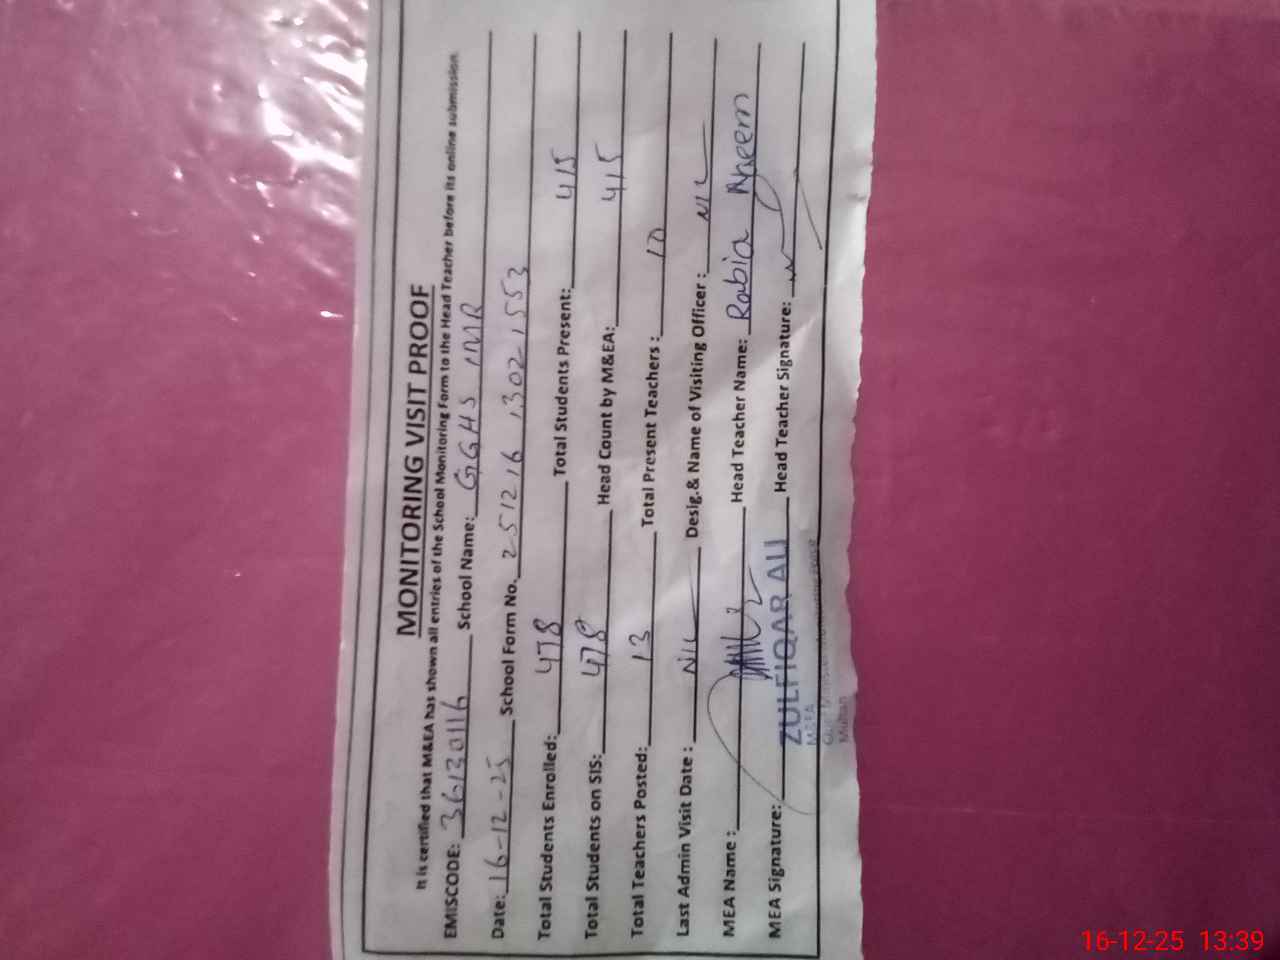 MONITORING VISIT PROOF
It is certified that M&EA has shown all entries of the School Monitoring Form to the Head Teacher before its online submission.
EMISCODE: 36130116 School Name: GGHS IMR
Date: 16-12-25 School Form No. 251216 1302 1553
Total Students Enrolled: 478 Total Students Present: 415
Total Students on SIS: 478 Head Count by M&EA: 415
Total Teachers Posted: 13 Total Present Teachers : 10
Last Admin Visit Date : NIL Desig.& Name of Visiting Officer : NIL
MEA Name : Head Teacher Name: Rabia Naeem
MEA Signature: Head Teacher Signature:
ZULFIQAR ALI
M&EA
Multan
16-12-25 13:39